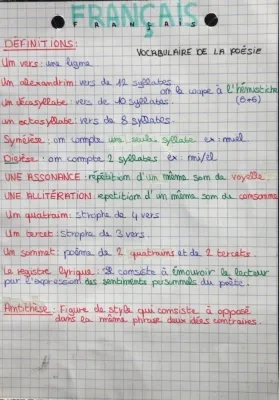 FRANÇAIS
FRANÇAIS
DÉFINITIONS:
VOCABULAIRE DE LA POÉSIE
Un vers: une ligne
Un alexandrin: vers de 12 syllabes
on le coupe à l'hémistiche
Un décasyllabe: vers de 10 syllabes (6+6)
Un octosyllabe: vers de 8 syllabes.
Synérèse: on compte une seule syllabe ex: nuil
Diérèse: on compte 2 syllabes ex: mi/el
UNE ASSONANCE: répétition d'un même son de voyelle
UNE ALLITÉRATION: repetition d'un même son de consonne
Un quatrain: strophe de 4 vers
Un tercet: strophe de 3 vers.
Un sonnet: poème de 2 quatrains et de 2 tercets.
Le registre lyrique: Il consiste à émouvoir le lecteur
par l'expression des sentiments personnels du poète.
Antithèse: Figure de style qui consiste à opposé
dans la même phrase deux idées contraires.